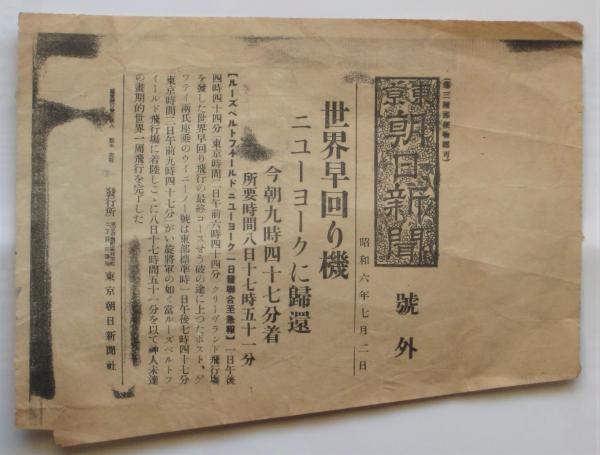 (第三種郵便物認可)
東京朝日新聞
號外
昭和六年七月二日
世界早回り機
ニユーヨークに歸還
今朝九時四十七分着
所要時間八日十七時五十一分
【ルーズベルトフイールド(ニユーヨーク)一日發聯合至急報】一日午後
四時四十四分(東京時間二日午前六時四十四分)クリーヴランド飛行場
を發した世界早回り飛行の最終コースせう破の途に上つたポスト、ゲ
ツテイ兩氏座乘のウイニーメー號は東部標準時一日午後七時四十七分
(東京時間二日午前九時四十七分)がい旋將軍の如く當ルーズベルトフ
イールド飛行場に着陸しこゝに八日十七時間五十一分を以て神人未達
の畫期的世界一周飛行を完了した
發行所 東京朝日新聞社